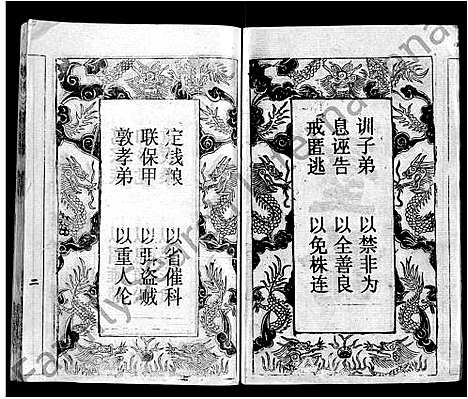 训子弟 以禁非为
息诬告 以全善良
戒匿逃 以免株连
定钱粮 以省催科
联保甲 以弭盗贼
敦孝弟 以重人伦
二
FamilySearch International